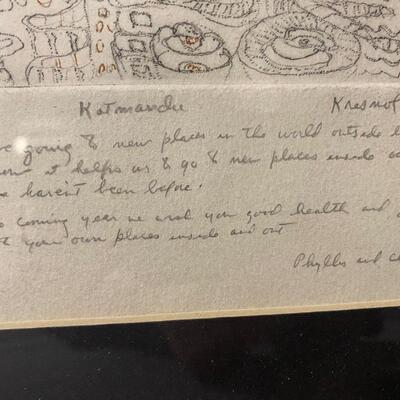 Katmandu Krasnof
going & new places in the world outside
it helps us & go & new places inside
haven't been before.
coming year we wish you good health and
your own places inside and out
Phyllis and